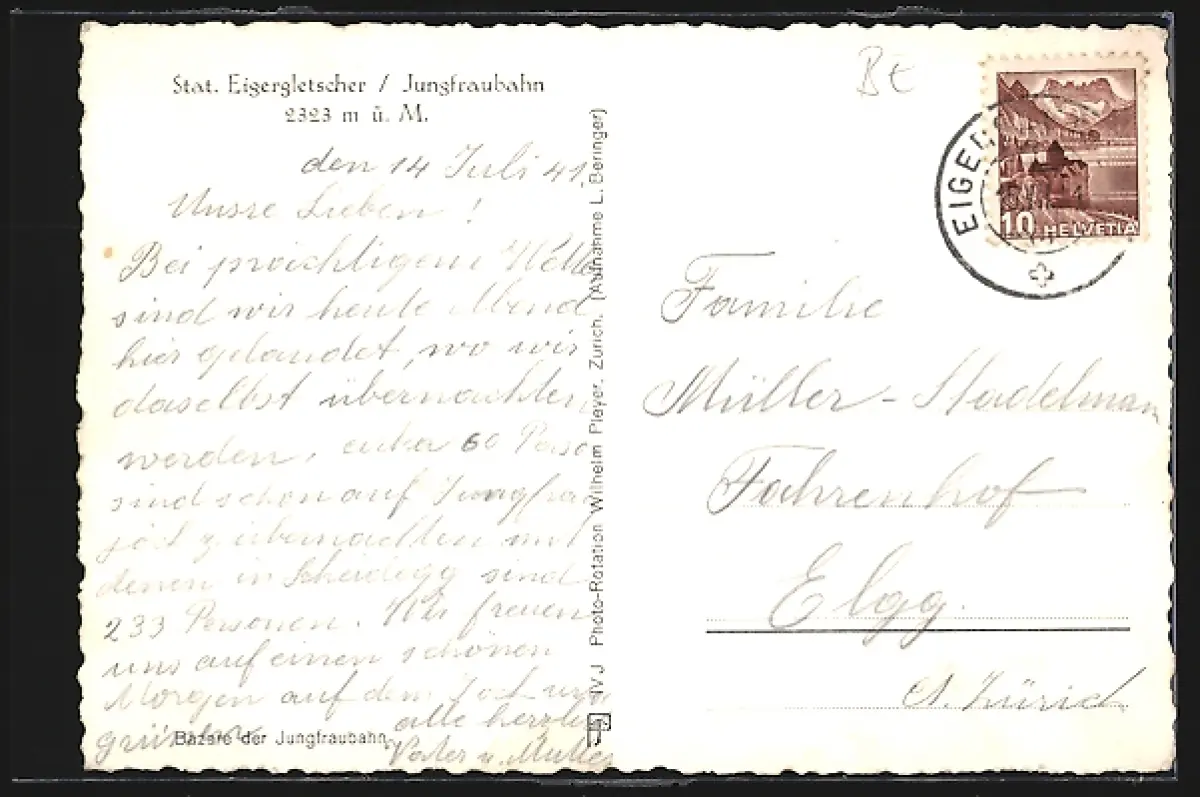 Stat. Eigergletscher / Jungfraubahn
2323 m ü. M.
den 14 Juli 41.
Unsre Lieben!
Bei prächtigem
sind wir heute Abend
hier gelandet, wo wir
daselbst übernachten
werden, 60
sind schon auf
joch z. übernachten mit
denen in Scheidegg sind
233 Personen. Wir freuen
uns auf einen schönen
Morgen auf dem Joch
grüssen alle herzlich
Vater u. Mutter
Bazare der Jungfraubahn
IVJ Photo-Rotation Wilhelm Pleyer, Zürich. (Aufnahme L. Beringer)
BE
10 HELVETIA
Familie
Müller - Stadelmann
Fahrenhof
Elgg.
Kt. Zürich